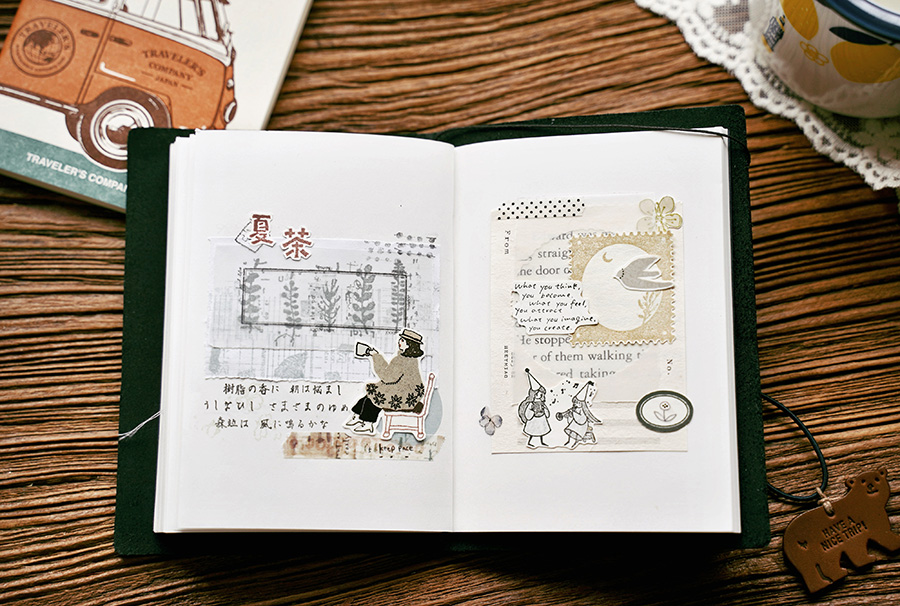 TRAVELER'S
COMPANY
JAPAN
TRAVELER'S
TRAVELER'S COMPA
夏茶
樹脂の香に 朝は悩まし
うしなひし さまざまのゆめ
森竝は 風に鳴るかな
From
ward was
straig
he door o
What you think,
you become.
What you feel,
you attract.
What you imagine,
you create.
He stopp
of them walking
red taking
No.
HAVE A
NICE TRIP!